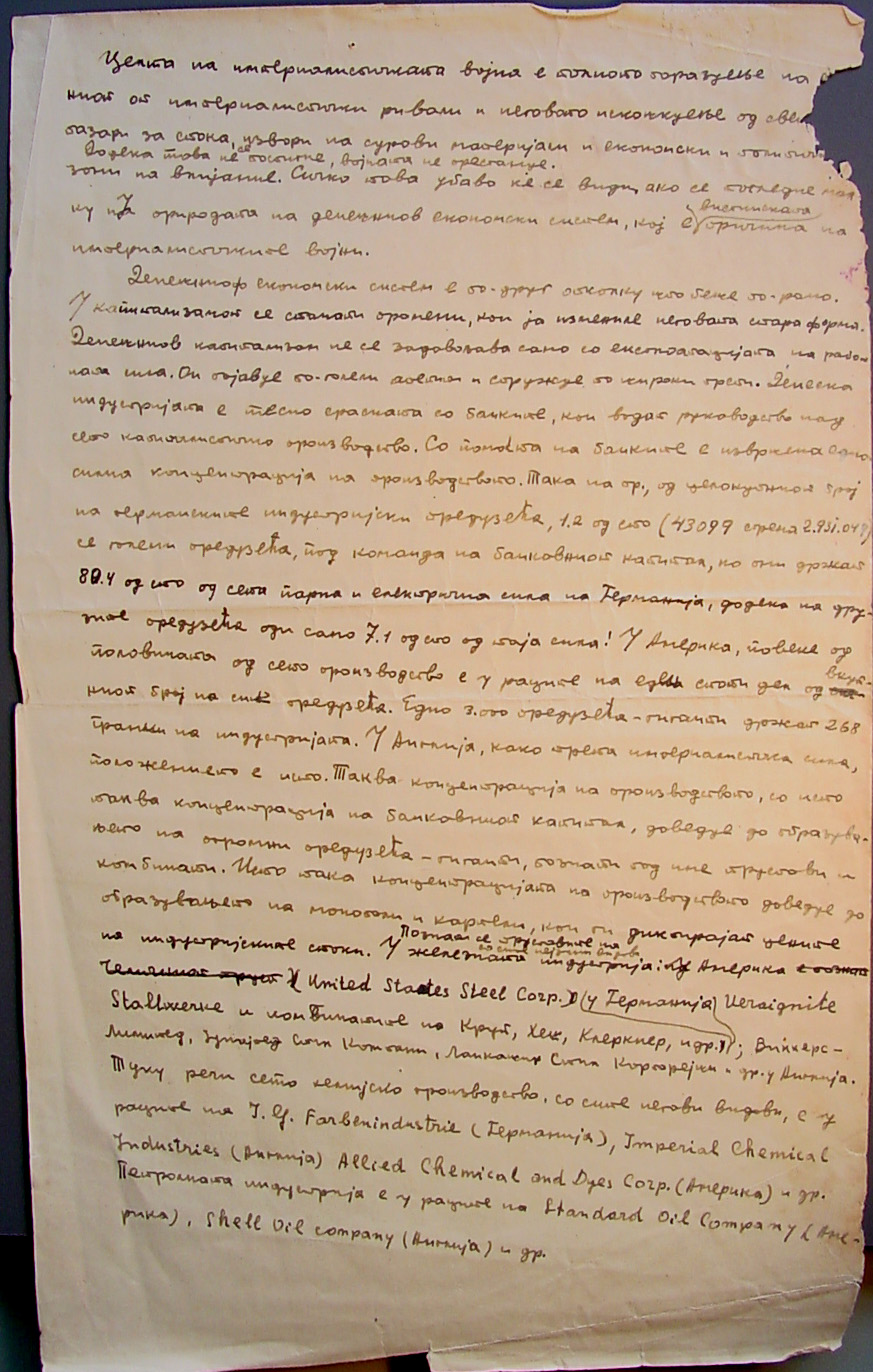 Целта на империалистичката војна е полното поразуење на
ниот от империалистички ривали и неговато искожкуење од свет
пазари за стока, извори на сурови материјали и економски и политич
Додека това не се постигне, војната не престануе.
зони на влијание. Сичко това убаво ќе се види, ако се погледне мал
ку на природата на денешниов економски систем, кој е вистинската причина на
империалистичките војни.
Денешниоф економски систем е по-друг отколку што беше по-рано.
У капитализамот се станати промени, кои ја измениле неговата стара форма.
Денешниов капитализам не се задоволава само со експлоатацијата на работ
ната сила. Он појавуе по-големи апетити и стружуе по широки трети. Денеска
индустријата е тесно срасната со банките, кои водат руководство над
сето капиталистично производство. Со помоќта на банките е извржена една
силна концентрација на производството. Така на пр., од целокупниот број
на германските индустријски предузеќа, 1.2 од сто (43099 спрема 2.931.049)
се големи предузеќа, под команда на банковниот капитал, но они држат
80.4 од сто од сета парна и електрична сила на Германија, додека на дру-
зите предузеќа оди само 7.1 од сто од таја сила! У Америка, повеќе од
половината од сето производство е у раците на еден стоти дел од вкуп-
ниот број на сите предузеќа. Едно 3.000 предузеќа-гиганти држат 268
гранки на индустријата. У Англија, како трета империалистичка сила,
положението е исто. Таква концентрација на производството, со исто
таква концентрација на банковниот капитал, доведуе до образува-
њето на огромни предузеќа-гиганти, познати под име трустови и
комбинати. Исто така концентрацијата на производството доведуе до
образувањето на монополи и картели, кои ги диктирајат цените
на индустријските стоки. У железната индустрија: У Америка
Познати се трустовите на
United States Steel Corp. (у Германија) Veraignite
Stallwerke и комбинатите на Круп, Хеш, Клеркнер, идр.; Виккерс-
Лимитед, Јунајтед Стил Компани, Ланкашир Стил Корпорејшн и др. у Англија.
Туку речи сето хемијско производство, со сите негови видови, е у
раците на I. G. Farbenindustrie (Германија), Imperial Chemical
Industries (Англија) Allied Chemical and Dyes Corp. (Америка) и др.
Петролната индустрија е у раците на Standard Oil Company (Аме-
рика), Shell Oil company (Англија) и др.